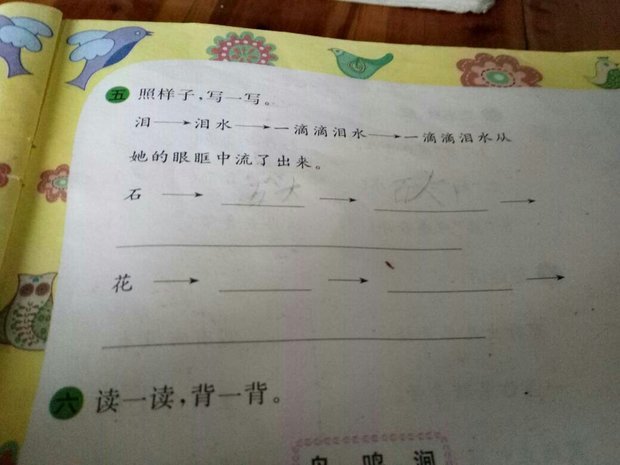 五 照样子,写一写。
泪→泪水→一滴滴泪水→一滴滴泪水从
她的眼眶中流了出来。
石→→→
花→→→
六 读一读,背一背。
鸟鸣涧